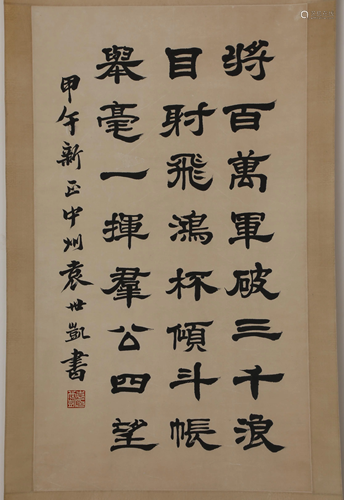 将百萬軍破三千浪
目射飛鴻杯傾斗帳
舉毫一揮羣公四望
甲午新正中州袁世凱書